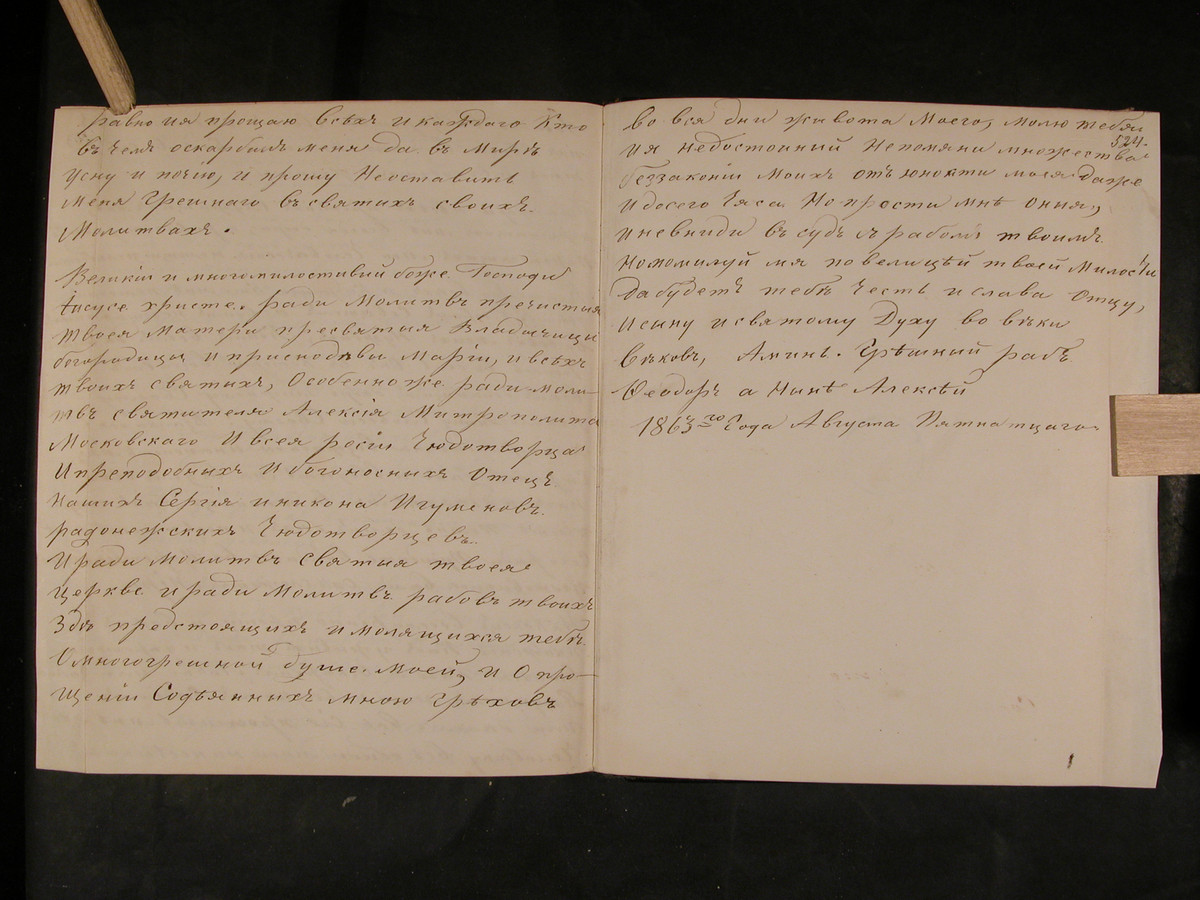 равно ия прощаю всѣхъ и каждаго Кто
въ чемъ оскарбилъ меня да въ Мирѣ
усну и почию, и прошу Неоставить
меня Грешнаго въ святыхъ своихъ
Молитвахъ.
Великій и многомилостивый боже Господи
Іисусе христе, ради Молитвъ пречистыя
твоея Матери пресвятыя Владычицы
богородицы И приснодѣвы Маріи, и всѣхъ
твоихъ святыхъ, Особенноже ради моли-
твъ святителя Алексія Митрополита
Московскаго И всея росіи Чюдотворца
И преподобныхъ И богоносныхъ Отецъ
нашихъ Сергія иникона Игуменовъ
радонежскихъ Чюдотворцевъ.
И ради Молитвъ святыя твоея
Церкве и ради Молитвъ рабовъ твоихъ
Здѣ предстоящихъ и молящихся тебѣ
Омногогрешной душе моей, и О про-
щеніи Содѣянныхъ мною Грѣховъ
во вся дни живота Моего, молю тебя
524.
ия недостойный Непомяни множества
беззаконій Моихъ отъ юности моея даже
И досего Часа. Но прости мнѣ оныя,
И невниди въ судъ съ рабомъ твоимъ
Нопомилуй мя повелицѣй твоей Милости
Дабудетъ тебѣ Честь и слава Отцу,
И сыну исвятому Духу во вѣки
Вѣковъ, Аминь. Грѣшный рабъ
Ѳеодоръ а Нынѣ Алексѣй
1863го Года Августа Пятнатцаго